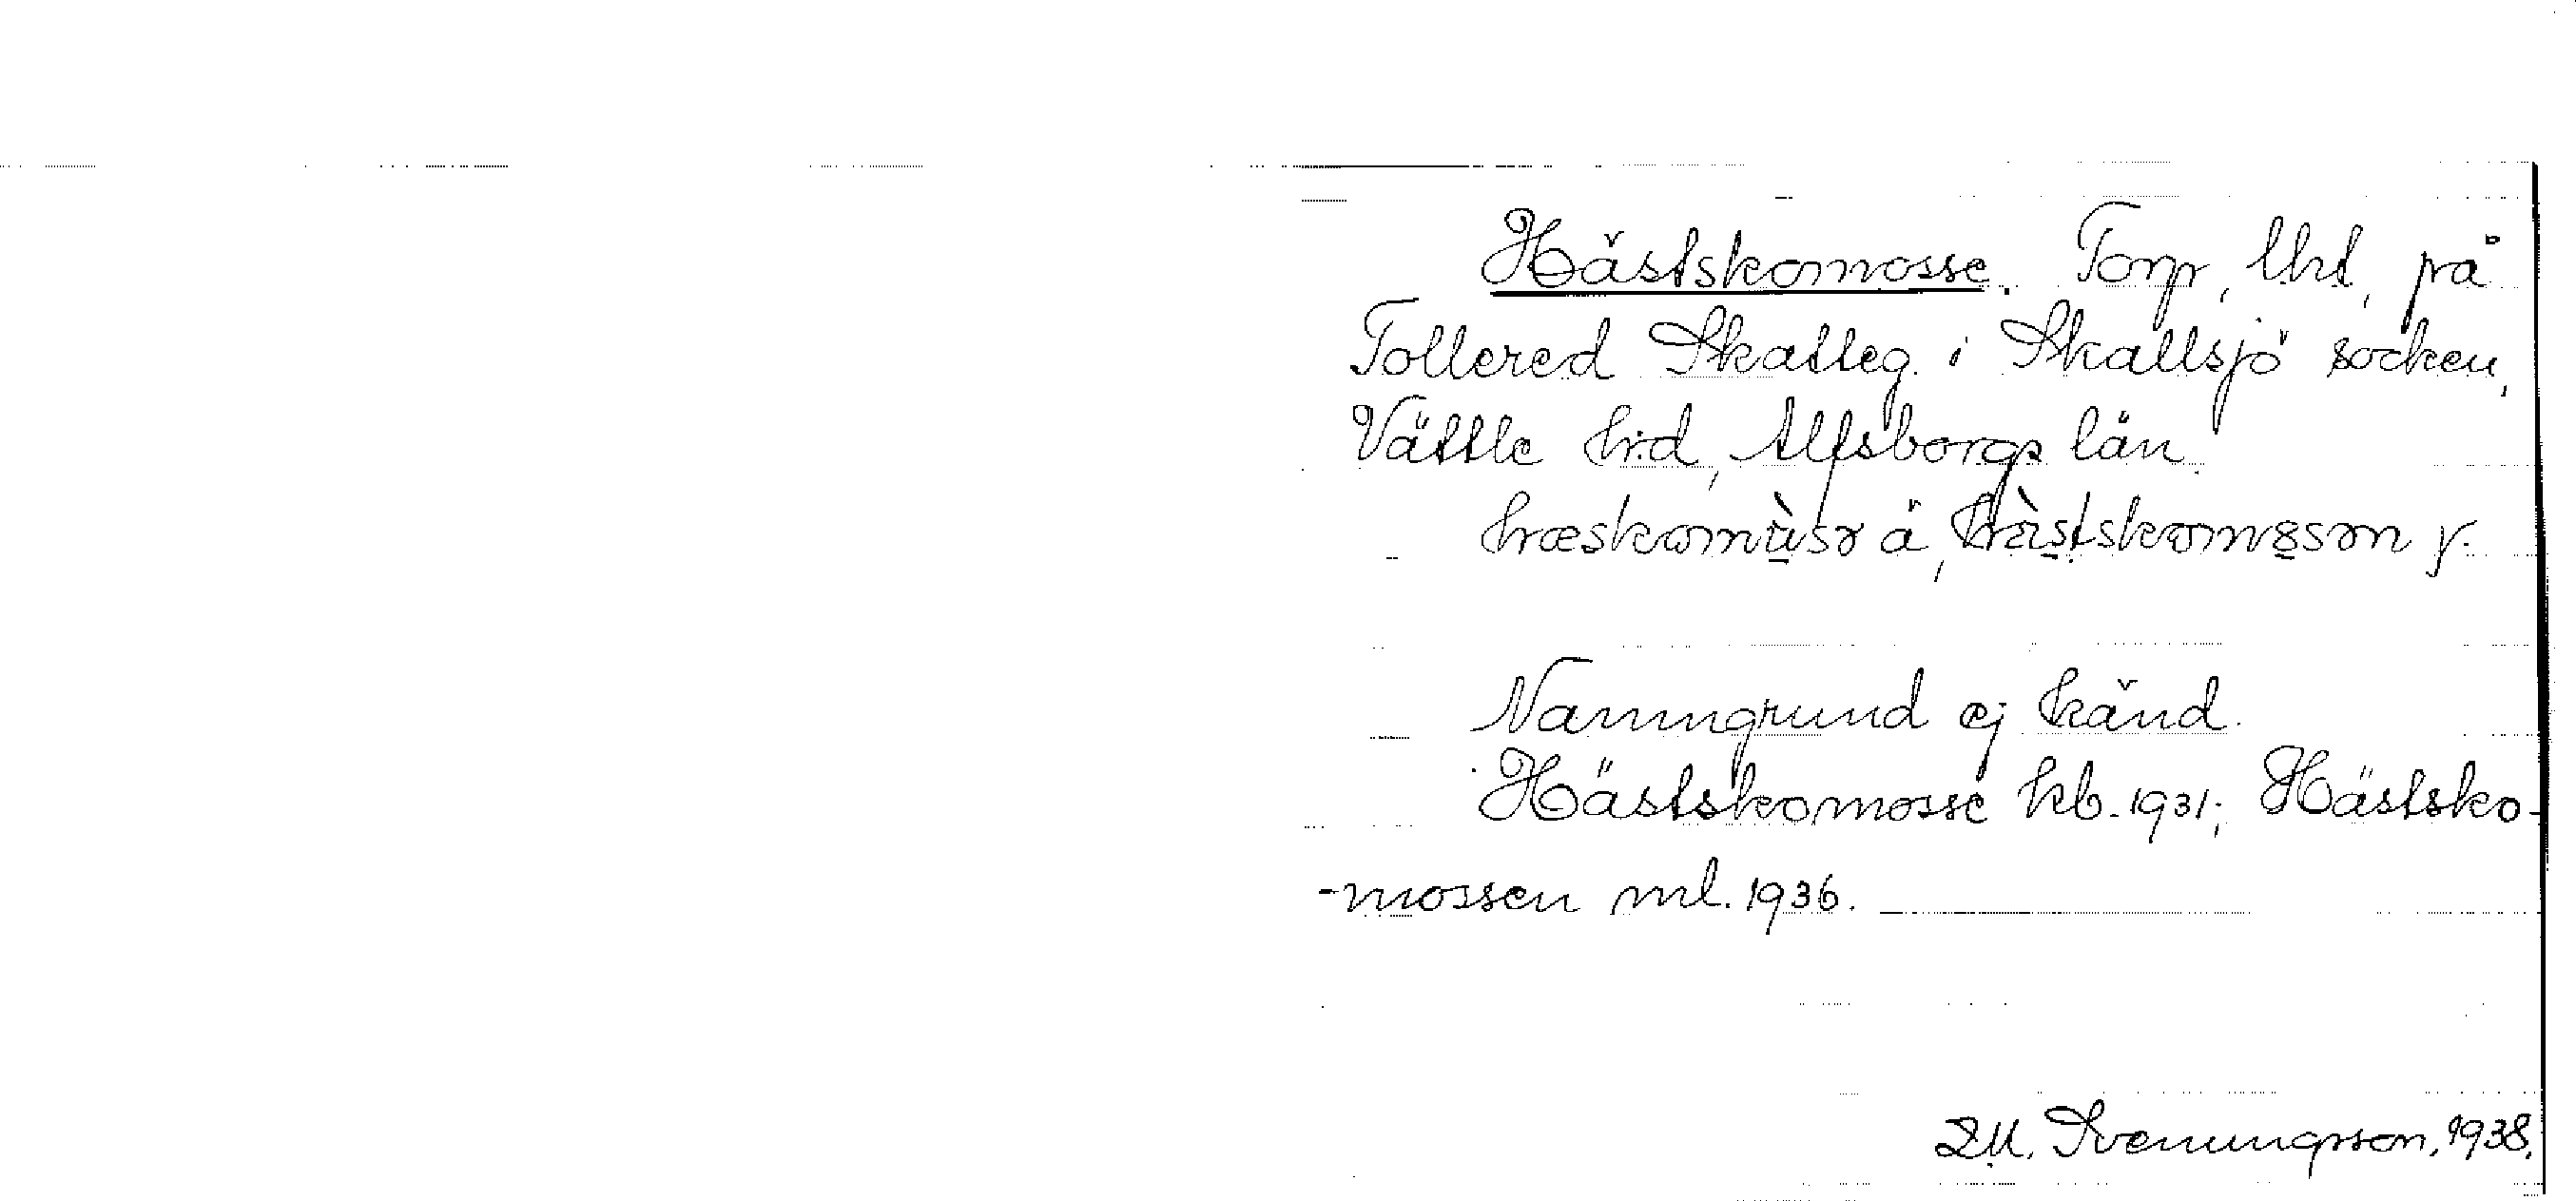 Hästskomosse. Torp, lht, på
Tollered Skatteg. i Skallsjö socken,
Vättle hrd, Älfsborgs län.
Namngrund ej känd.
Hästskomosse kb. 1931; Hästsko-
-mossen ml. 1936.
D.U. Svenungsson, 1938.